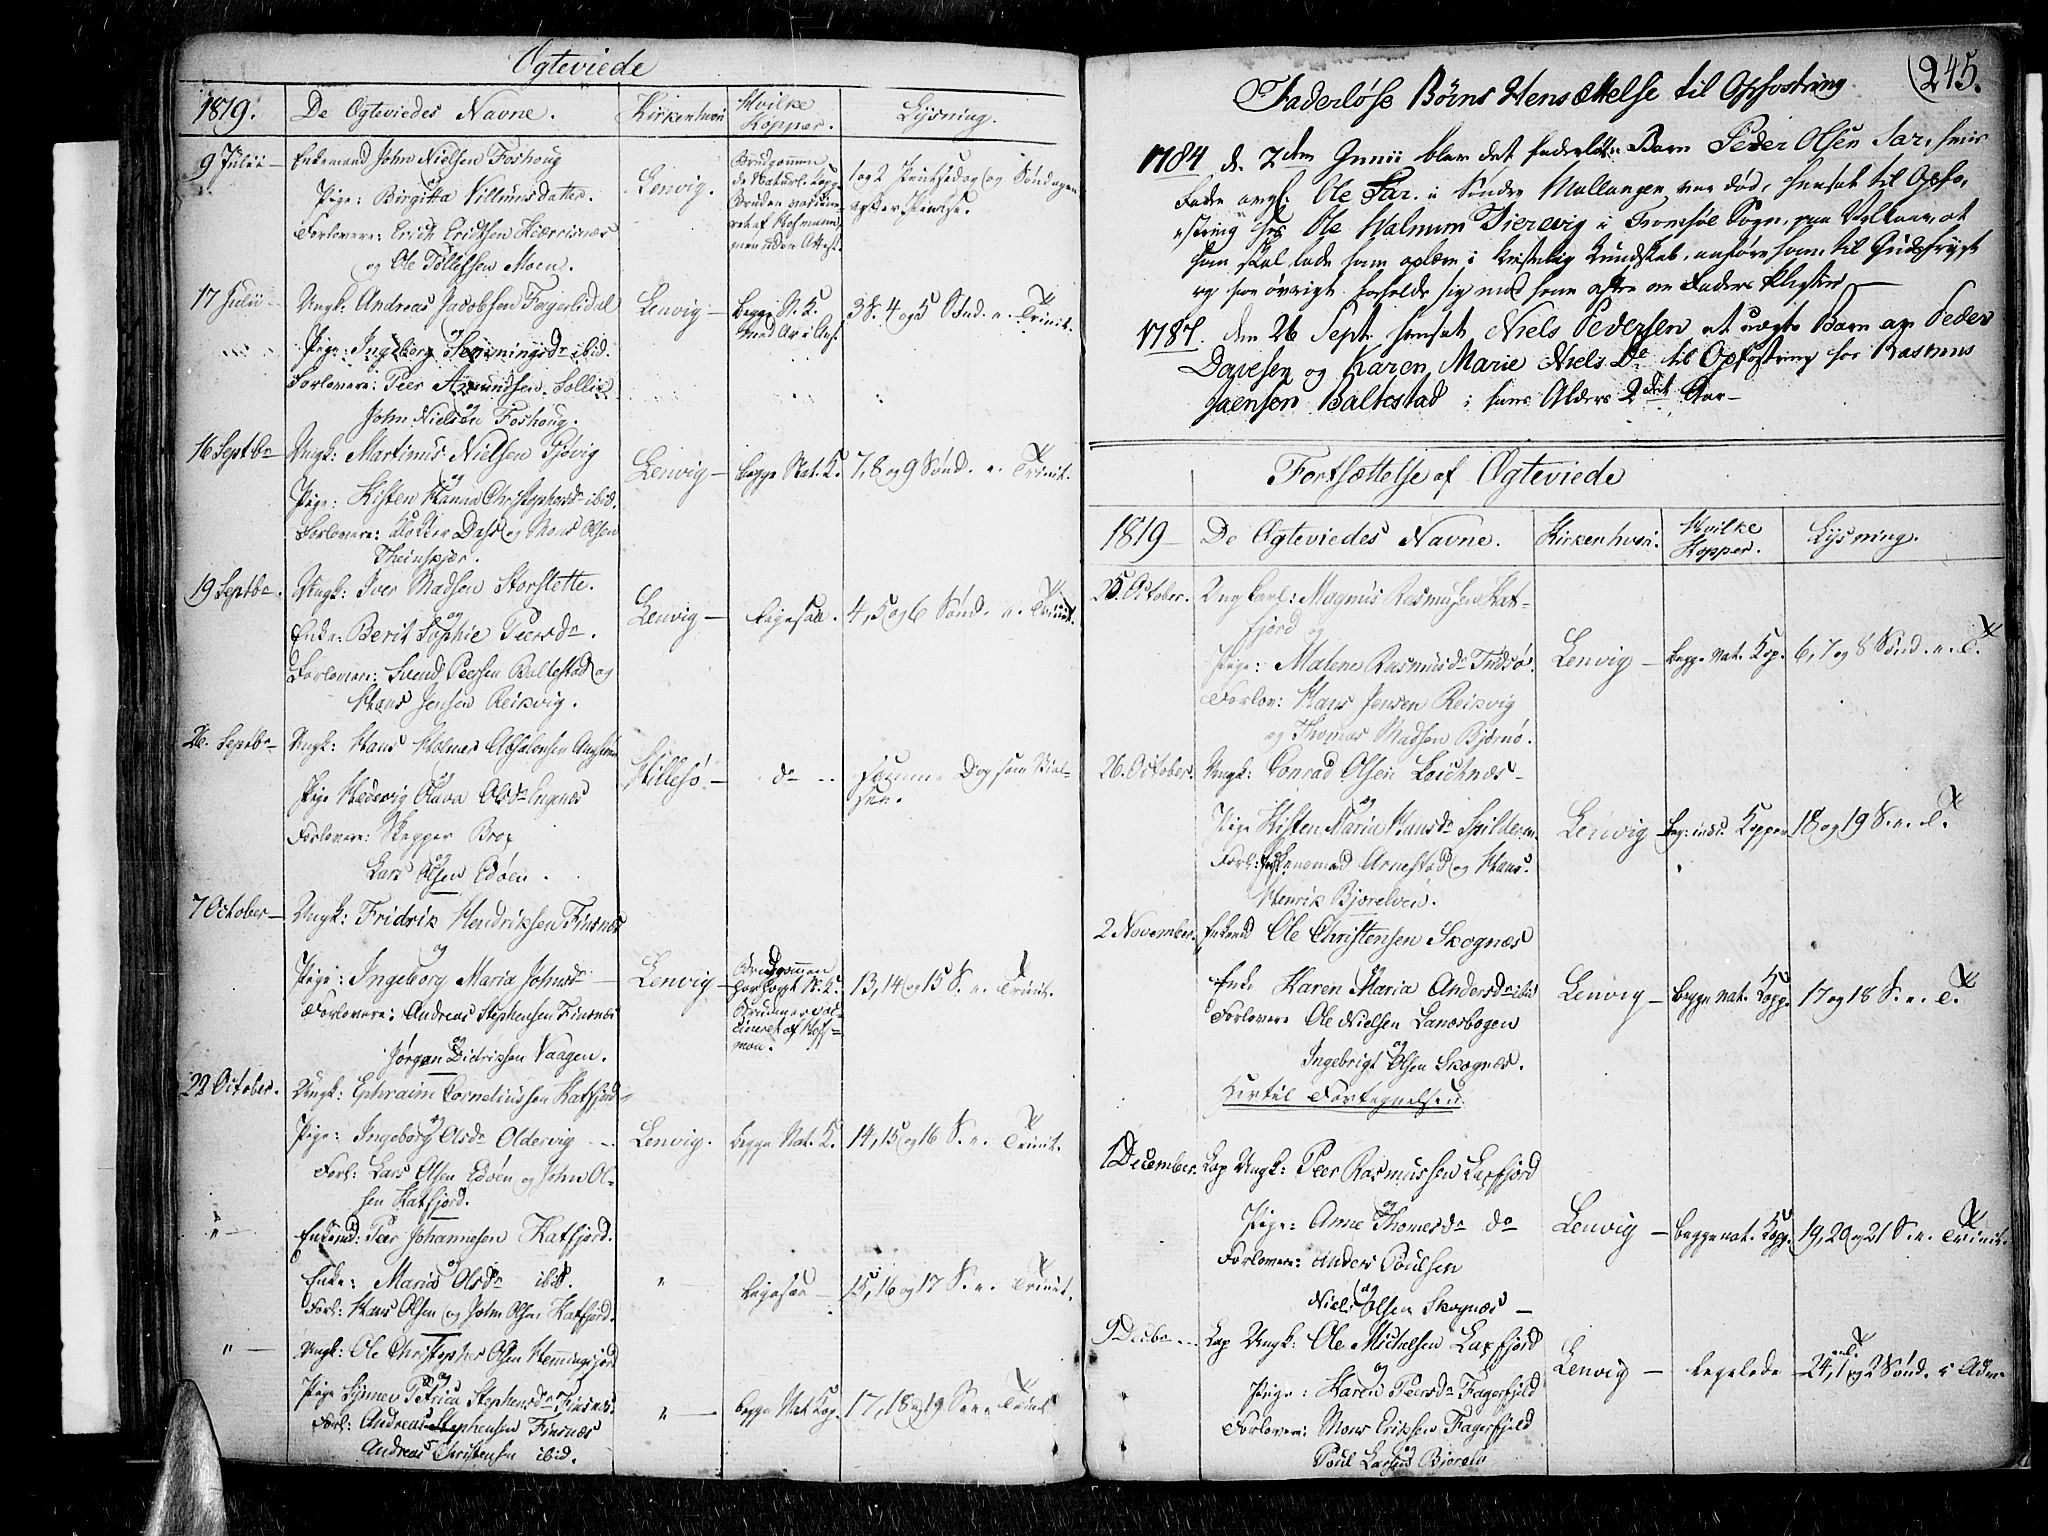 Ægteviede
1819. De Ægteviedes Navne. Kirken hvori Hvilke Kopper. Lysning.
9 Julii — Enkemand John Nielsen Foshoug
og
Pige: Birgitta Villumsdatter.
Forlovere: Erich Erichsen Kiærrisnæs
og Ole Tollefsen Moen.
Lenvig.
Brudgommen de Naturl. Kopp. Bruden vaccineret af Hofmann, men uden Attest.
1 og 2 Pintsedag og Søndagen efter Pintse.
17 Julii — Ungk: Andreas Jacobsen Fagerlidal
og
Pige: Ingeborg Hemmingsdr ibid.
Forlovere: Peer Amundsen Sollie
og
John Nielsen Foshoug.
Lenvig —
begge N. K.
3 S. 4 og 5 Sønd. e. Trinit.
16 Septbr Ungk: Martinus Nielsen Gjøvig
og
Pige: Kisten Hanna Christophersdr ibid.
Forlovere: Klokker Dass og Mons Olsen
Theinskjær.
Lenvig —
begge Nat. K.
7, 8 og 9 Sønd. e. Trinit.
19 Septbr. Ungk: Iver Madsen Storslette.
og
Enke: Berit Sophie Peersdr.
Forlovere: Svend Peersen Baltestad og
Hans Jensen Reikvig.
Lenvig —
ligesaa.
4, 5 og 6 Sønd. e. Trinit.
26. Septbr Ungk: Hans Holmer Absalonsen
og
Pige Hedevig Olava Olsdr Engnæs
Forlovere: Skipper Brox
og
Lars Olsen Edøen.
Hillesø —
do
samme Dag som Vielsen.
7 October — Ungk: Fridrik Hendriksen Finsnæs
og
Pige: Ingeborg Maria Johnsdr —
Forlovere: Andreas Stephensen Finsnæs
og
Jørgen Didriksen Vaagen.
Lenvig —
Brudgommen har havt N. K. Bruden vaccineret af Hofman.
13, 14 og 15 S. e. Trinit.
22 October. Ungk: Ephraim Corneliussen Katfjord
og
Pige: Ingeborg Olsdr Oldervig
Forl: Lars Olsen Edøen og John Olsen Katfjord.
Lenvig.
begge Nat. K.
14, 15 og 16 S. e. Trinit.
" — Enkemd: Peer Johannesen Katfjord.
og
Enke: Maria Olsdr ibid.
Forl: Hans Olsen og John Olsen Katfjord.
"
ligesaa —
15, 16 og 17 S. e. Trinit.
" — Ungk: Ole Christopher Olsen Hemmingsjord
og
Pige Synnev Petrica Stephensdr Finsnæs
Forl: Andreas Stephensen Finsnæs
Andreas Christensen ibid.
" —
begge Nat Kop.
17, 18 og 19 S. e. Trinit
245.
Faderløse Børns Hensættelse til Opfostring
1784 d. 2den Junii blev det faderløse Barn Peder Olsen Sar, hvis
Fader angl: Ole Sar i Søndre Mallangen var død, hensat til Opfo,
string hos Ole Halmum Dierevig i Tromsøe Sogn, paa Vilkaar, at
han skal lade ham oplære i Kristelig Kundskab, anføre ham til Gudsfrygt
og for øvrigt forholde sig mod ham efter en Faders Pligter —
1787. den 26 Sept. hensat Niels Pedersen et uægte Barn av Peder
Davesen og Karen Marie Niels Dr til Opfostring hos Rasmus
Jaensen Baltestad i hans Alders 2det Aar —
Fortsættelse af Ægteviede
1819 — De Ægteviedes Navne. Kirken hvori. Hvilke Kopper. Lysning.
25. October. Ungkarl: Magnus Rasmusen Kat-
fjord og
Pige: Malene Rasmusdr Tussø.
Forlov: Hans Jensen Reikvig
og Thomas Madsen Bjørnø.
Lenvig —
begge nat. Kop.
6, 7 og 8 Sønd. e. T.
26. October. Ungk: Conrad Olsen Leiknæs —
og
Pige Kisten Maria Hansdr Spilderen
Forl: Enkemand Arnestad og Hans
Henrik Bjorelven.
Lenvig
Kopper
18 og 19 S. e. T.
2 November. Enkemd Ole Christensen Skognæs
og
Enke Karen Maria Andersdr ibid
Forlovere Ole Nielsen Lanesbogen
og
Ingebrigt Olsen Skognæs.
Lenvig —
begge nat. Kopp.
17 og 18 S. e. T.
Hertil Fortegnelsen.
1 December. Lap Ungk: Peer Rasmussen Laxfjord
og
Pige: Anne Thomesdr do
Forlovere: Anders Poulsen
og
Niels Olsen Skognæs —
Lenvig —
begge nat. Kopp.
19, 20 og 21 S. e. Trinit.
9 Decbr — Lap Ungk: Ole Michelsen Laxfjord
og
Pige: Karen Peersdr Fagerfjeld
Forlovere: Mons Eriksen Fagerfjeld
og
Poul Larsen Bjorelv
Lenvig —
begge do
24, 1 og 2 Sønd. i Adv.